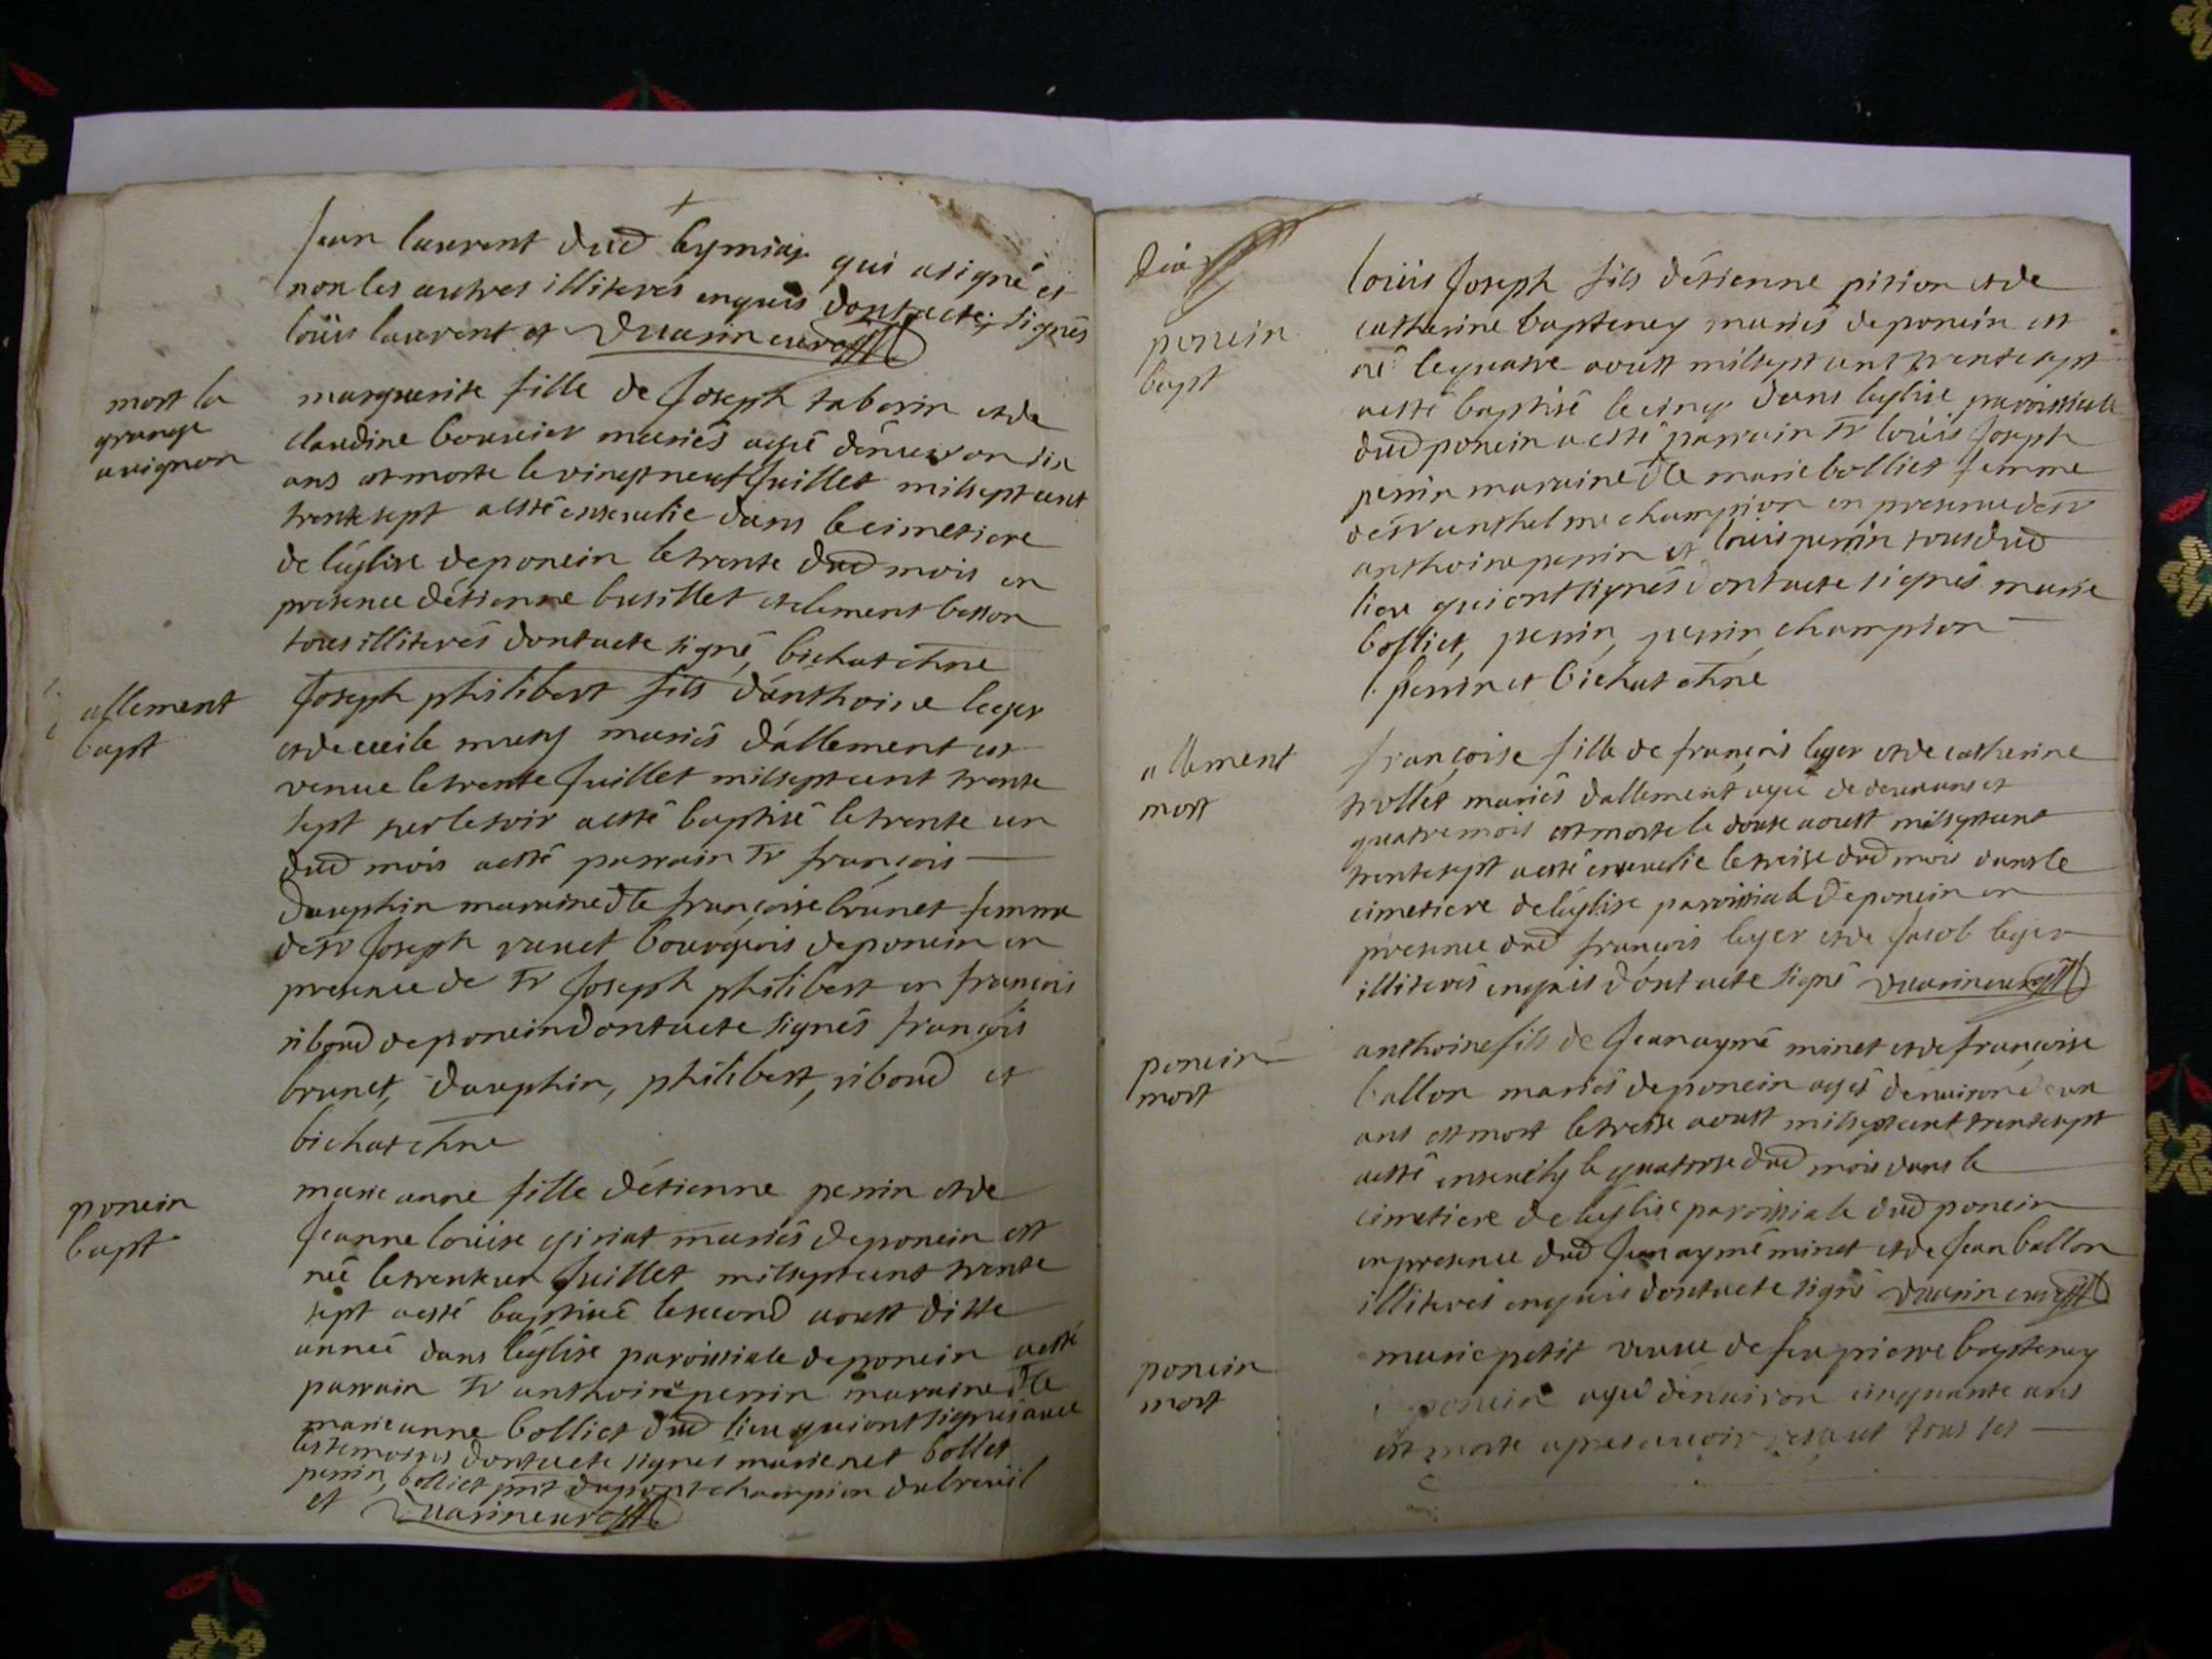 Jean laurent dud leymiaz qui a signé et
non les autres illiterés enquis dont acte; signés
loüis laurent et Duarin curé
mort la
grange
avignon
marguerite fille de Joseph taborin et de
claudine bouvier mariés agée d'environ six
ans est morte le vingt neuf Juillet mil sept cent
trente sept a esté ensevelie dans le cimetiere
de l'église de poncin le trente dud mois en
presence d'étienne busillet et clement besson
tous illiterés dont acte signé, bichat chne
allement
bapt
Joseph philibert fils d'anthoine leger
et de cecile mariés d'allement est
venue le trente Juillet mil sept cent trente
sept sur le soir a esté baptisé le trente un
dud mois a esté parrain Sr françois
dauphin maraine dlle françoise brunet femme
de Sr Joseph ravet bourgeois de poncin en
presence de Sr Joseph philibert et françois
riboud de poncin dont acte signés françois
brunet, dauphin, philibert, riboud et
bichat chne
poncin
bapt
marie anne fille d'étienne perrin et de
Jeanne loüise giriat mariés de poncin est
née le trente un Juillet mil sept cent trente
sept a esté baptisée le second aoust ditte
année dans l'église paroissiale de poncin a esté
parrain Sr anthoine perrin maraine dlle
marie anne bolliet dud lieu qui ont signés avec
les temoins dont acte signés marie bollet
perrin, bolliet pnt dupont champion dubreuil
et Duarin curé
poncin
bapt
loüis Joseph fils d'étienne pition et de
catherine bapteney mariés de poncin est
né le quatre aoust mil sept cent trente sept
a esté baptisé le cinq dans l'église paroissiale
dud poncin a esté parrain Sr loüis Joseph
perrin maraine dlle marie bolliet femme
de Sr anthelme champion en presence de Sr
anthoine perrin et loüis perrin tous dud
lieu qui ont signés dont acte signés marie
bolliet, perrin, perrin, champion
l. perrin et bichat chne
allement
mort
françoise fille de françois leger et de catherine
trollet mariés d'allement agée de deux ans et
quatre mois est morte le douse aoust mil sept cent
trente sept a esté ensevelie le treise dud mois dans le
cimetiere de l'église paroissiale de poncin en
presence dud françois leger et de Jacob leger
illiterés enquis dont acte signé Duarin curé
poncin
mort
anthoine fils de Jean aymé minet et de françoise
ballon mariés de poncin agé d'environ
ans est mort le treise aoust mil sept cent trente sept
a esté ensevely le quatorse dud mois dans le
cimetiere de l'église paroissiale dud poncin
en presence dud Jean aymé minet et de Jean ballon
illiterés enquis dont acte signé Duarin curé
poncin
mort
marie petit veuve de feu pierre bapteney
poncin agée d'environ cinquante ans
est morte apres avoir tous les